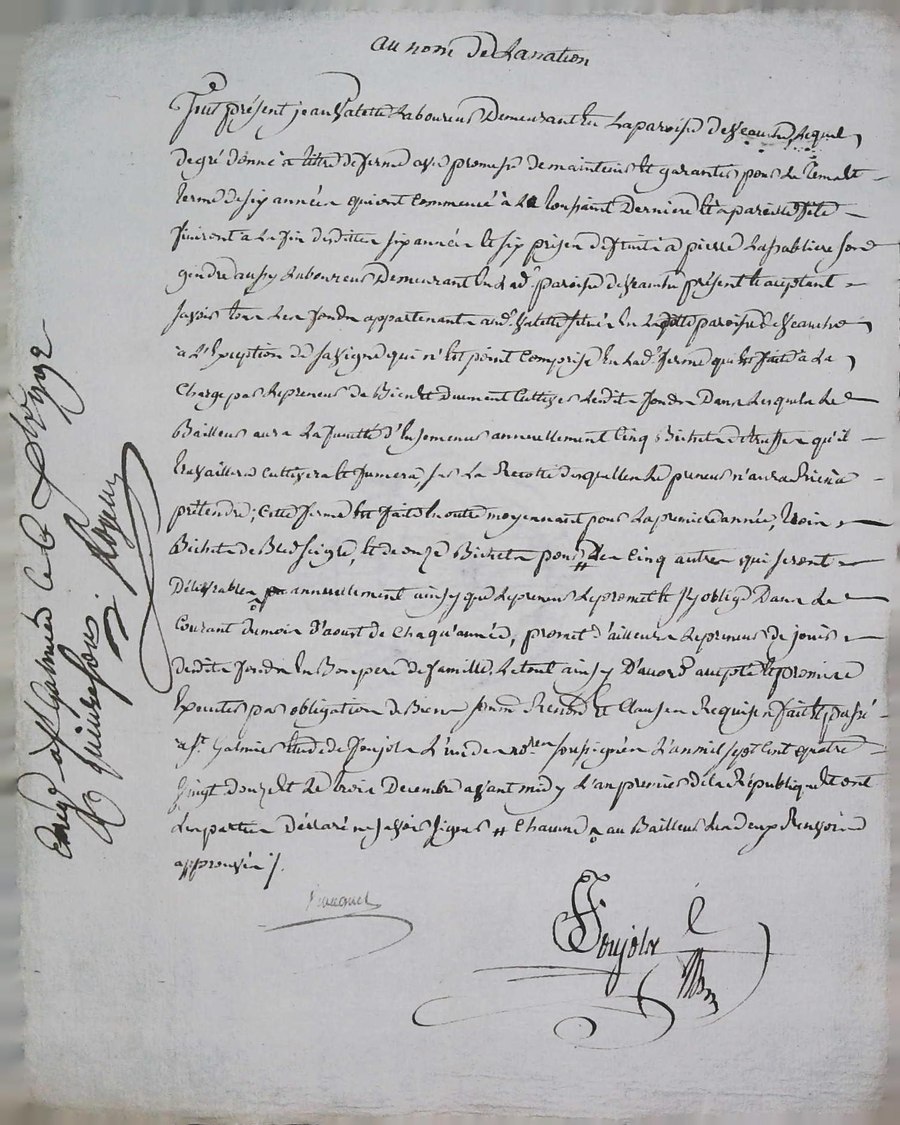 au nom de La nation
fut présent jean Valette Laboureur Demeurant En La paroisse de Veauche, Lequel
de gré donne à titre de ferme avec promesse de maintenir et garantir pour Le Tems et
terme de six années qui ont Commencé à La toussaint Derniere et à pareille fête
finiront à La fin desdittes six années et six prises de fruits à pierre Lassabliere son
gendre aussy Laboureur Demeurant En Lad. paroisse de Veauche présent et aceptant
savoir tous Les fonds appartenants aud. Valette situés En Laditte paroisse de Veauche
à L'Exception de sa vigne qui n'Est point Comprise En Lad. ferme qui Est faite à La
Charge par Le preneur de Bien et Duement Cultiver Lesdits fonds Dans Lesquels Le
Bailleur aura La faculté d'Ensemencer annuellement Cinq Bichets de truffes qu'il
travaillera cultivera et fumera, sur La Recolte desquelles Le preneur n'aura Rien à
prétendre; Cette ferme Est faite En outre moyennant pour La premiere année, trois
Bichets de Bled seigle, et de onze Bichets pour # Les Cinq autres qui seront
Délivrables annuellement ainsy que Le preneur Le promet et s'y oblige Dans Le
Courant du mois D'aoust de Chaqu'année, promet d'ailleurs Le preneur de jouir
desdits fonds En Bon pere de famille. Le tout ainsy D'acord accepté et promis
Executer par obligation de Biens soumn. Renonc. et Clauses Requises fait et passé
à St. Galmier Etude de Foujols L'un des nores. soussignés L'an mil sept Cent quatre
Vingt Douze et Le trois Decembre avant midy L'an premier de la République Et ont
Les parties Déclaré ne savoir signer # Chacune au Bailleur Les deux Renvois
approuvés /.
Foujols
Enregé. à St. Galmier Ce 6 Xbre 1792